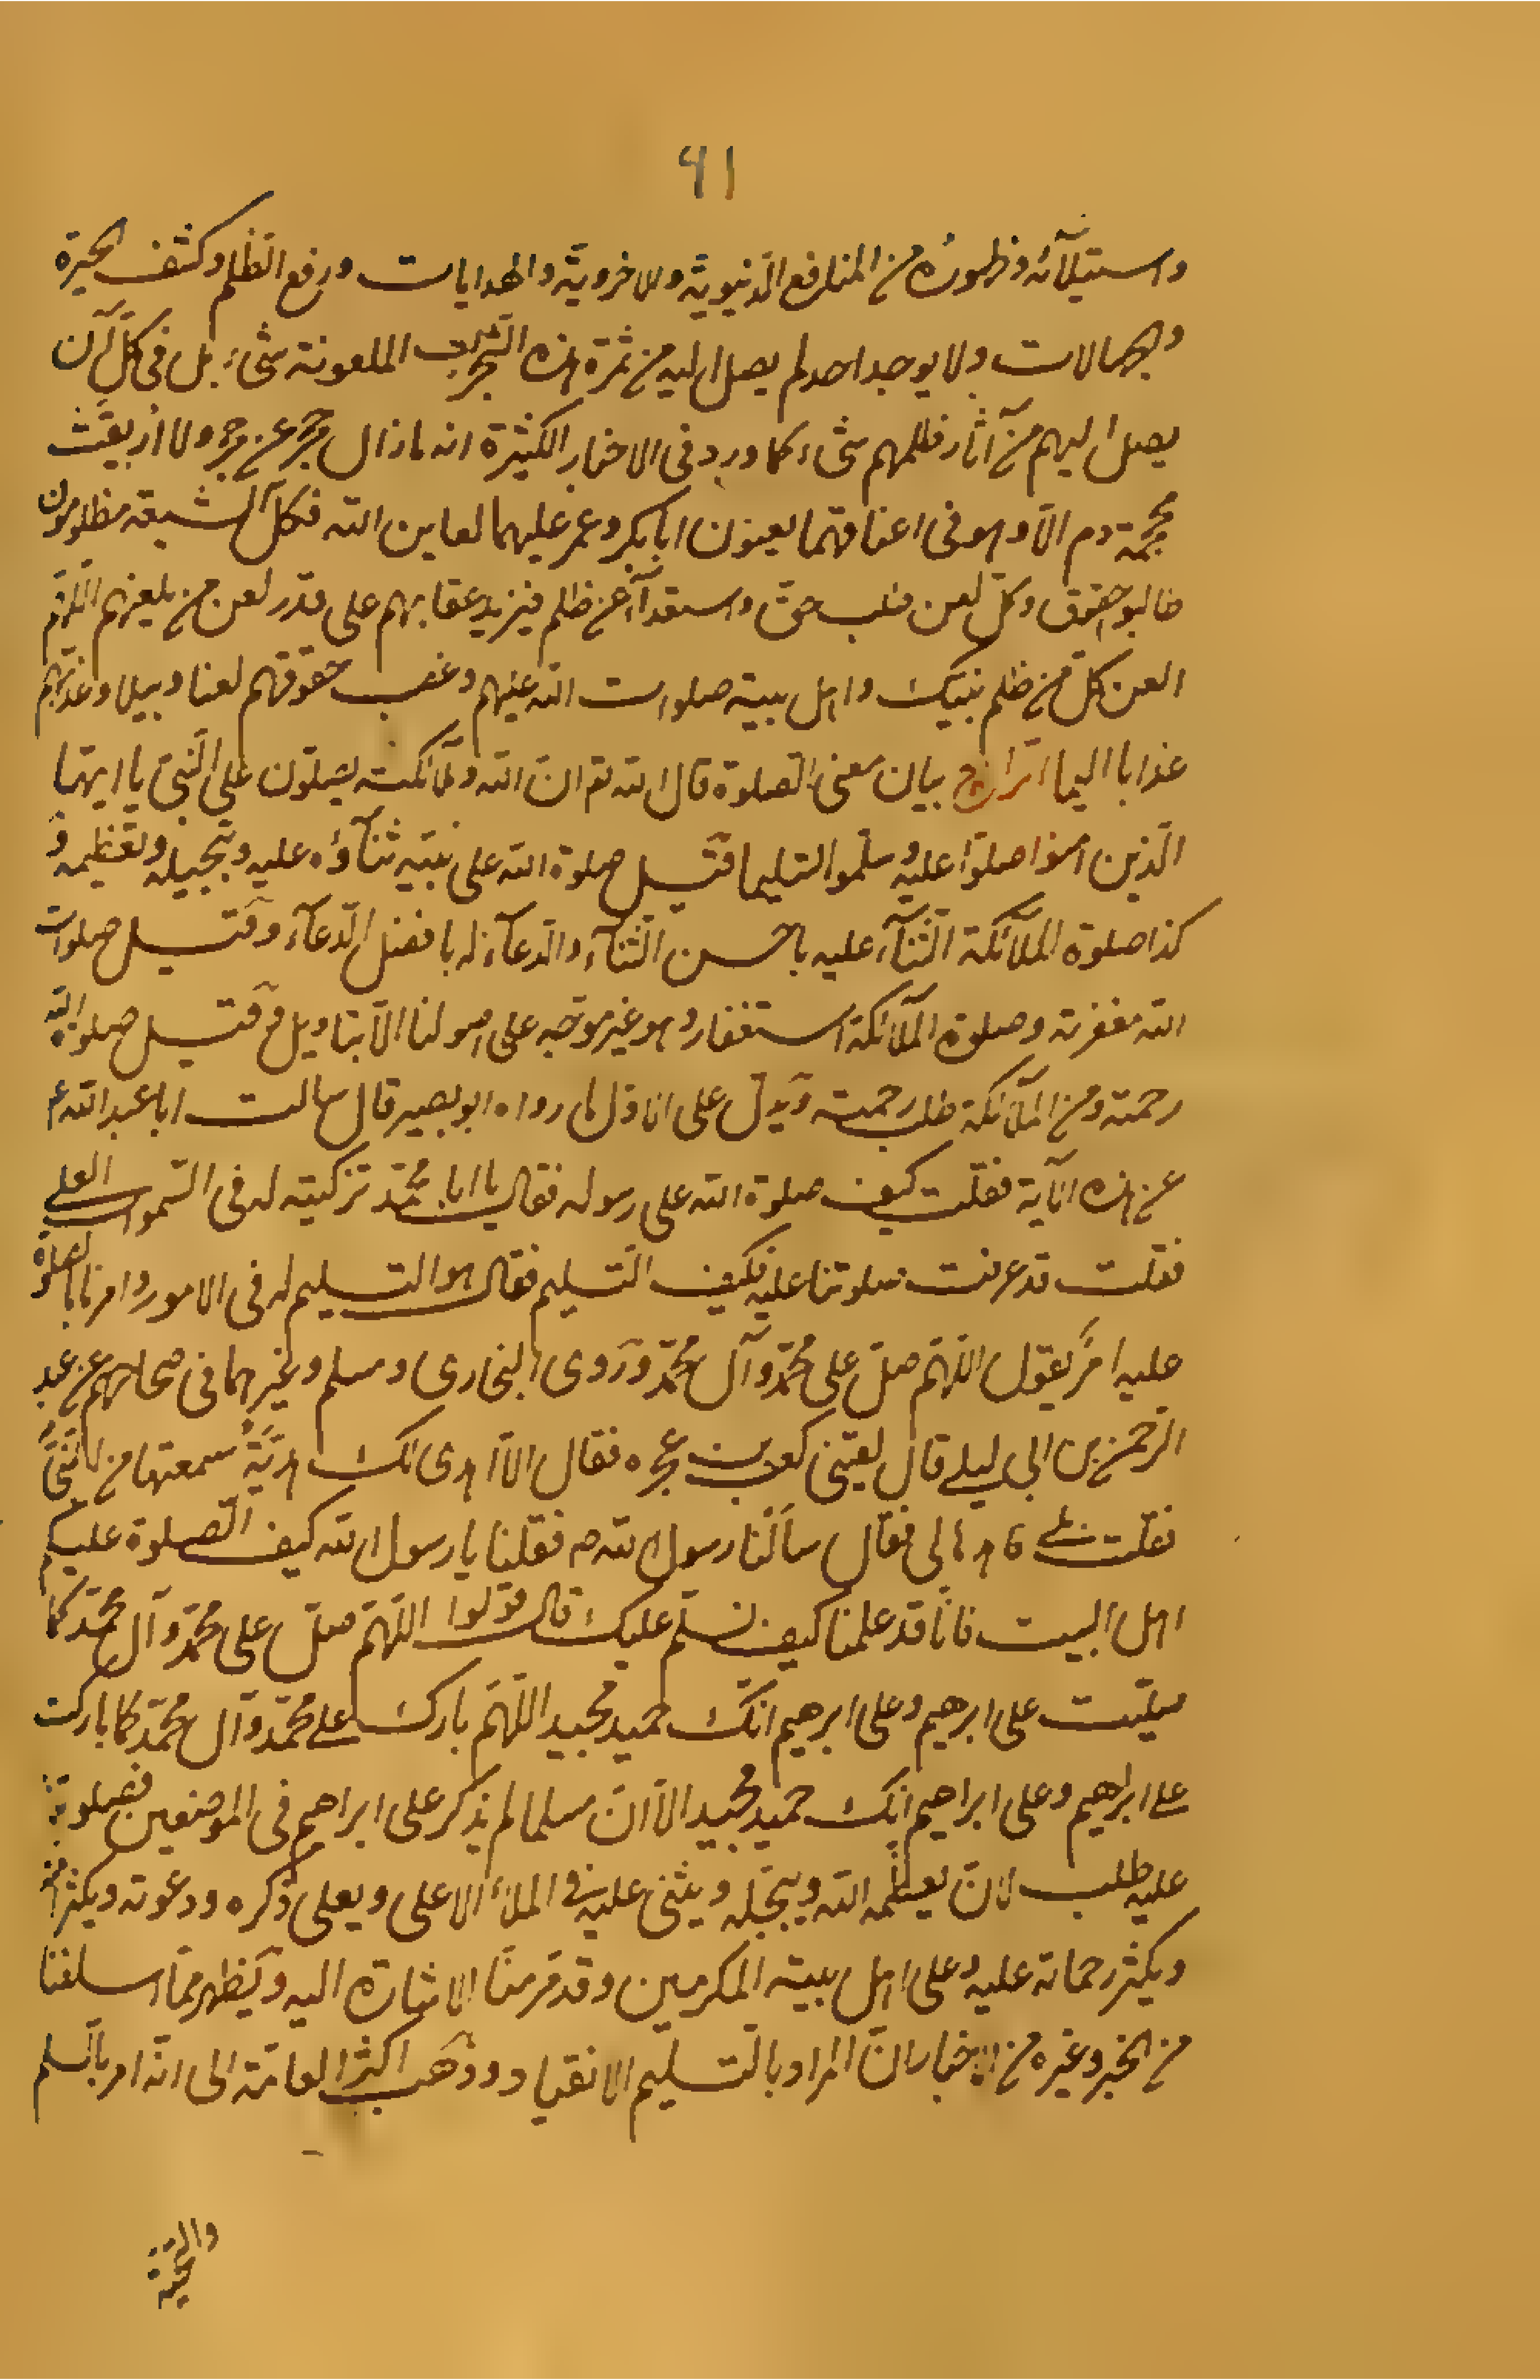 ٦١
واستيلآئه وظهوره من المنافع الدنيوية والاخروية والهدايات ورفع الظلم وكشف الحيرة
والجهالات ولا يوجد احد لم يصل اليه من ثمرة هذه الشجرة الملعونة شئ بل فى كل آن
يصل اليهم من آثار ظلمهم شئ كما ورد فى الاخبار الكثيرة انه ما زال حجر عن حجر ولا اريقت
محجمة دم الا وهو فى اعناقهما يعنون ابابكر وعمر عليهما لعاين الله فكل الشيعة مظلومون
طالبو حقوق وكل لعن طلب حق واستعدآء عن ظلم فيزيد عقابهم على قدر لعن من يلعنهم اللهم
العن كل من ظلم نبيك واهل بيته صلوات الله عليهم وغصب حقوقهم لعنا وبيلا وعذبهم
عذابا اليما الرابع بيان معنى الصلوة قال الله تع ان الله وملائكته يصلون على النبى يا ايها
الذين امنوا صلوا عليه وسلموا تسليما فقيل صلوة الله على نبيه ثنآؤه عليه وتبجيله وتعظيمه و
كذا صلوة الملآئكة الثنآء عليه باحسن الثنآء والدعآء له بافضل الدعآء وقيل صلوات
الله مغفرته وصلوة الملآئكة استغفار وهو غير موجه على اصولنا الا بتاويل وقيل صلوة الله
رحمة ومن الملآئكة طلب رحمته ويدل على الاول ما رواه ابو بصير قال سالت ابا عبد الله ع
عن هذه الآية فقلت كيف صلوة الله على رسوله فقال يا ابا محمد تزكيته له فى السموات العلى
فقلت قد عرفت صلوتنا عليه فكيف التسليم فقال هو التسليم له فى الامور وامرنا بالصلوة
عليه امر بقول اللهم صل على محمد وآل محمد وروى البخارى ومسلم وغيرهما فى صحاحهم عن عبد
الرحمن بن ابى ليلى قال لقينى كعب بن عجره فقال الا اهدى لك هدية سمعتها من النبى
فقلت بلى فاهدها لى فقال سألنا رسول الله ص فقلنا يا رسول الله كيف الصلوة عليكم
اهل البيت فانا قد علمنا كيف نسلم عليك قال قولوا اللهم صل على محمد وآل محمد كما
صليت على ابرهيم وعلى ابرهيم انك حميد مجيد اللهم بارك على محمد وآل محمد كما باركت
على ابرهيم وعلى ابراهيم انك حميد مجيد الا ان مسلما لم يذكر على ابراهيم فى الموضعين فصلوتنا
عليه طلب لان يعظمه الله ويبجله ويثنى عليه فى الملأ الاعلى ويعلى ذكره ودعوته ويكثر
ويكثر رحماته عليه وعلى اهل بيته المكرمين وقد مر منا الاشارة اليه ويظهر مما اسلفنا
من الخبر وغيره من الاخبار ان المراد بالتسليم الانقياد وذهب اكثر العامة الى انه امر بالسلم
والتحية